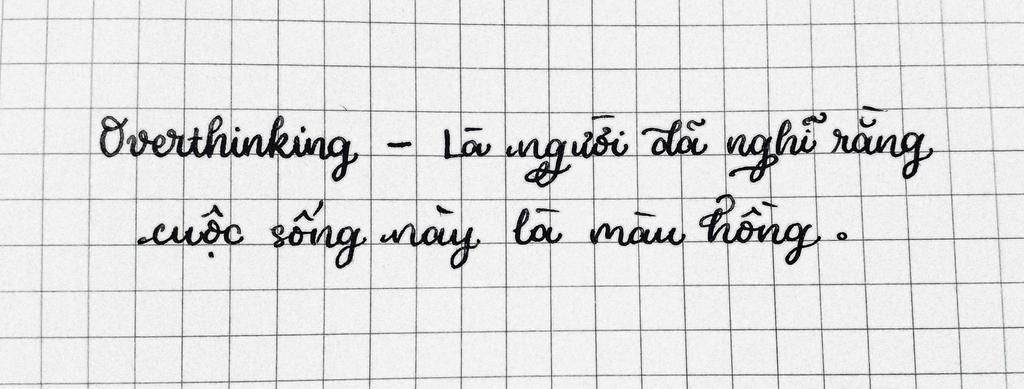 Overthinking - Là người đã nghĩ rằng
cuộc sống này là màu hồng.